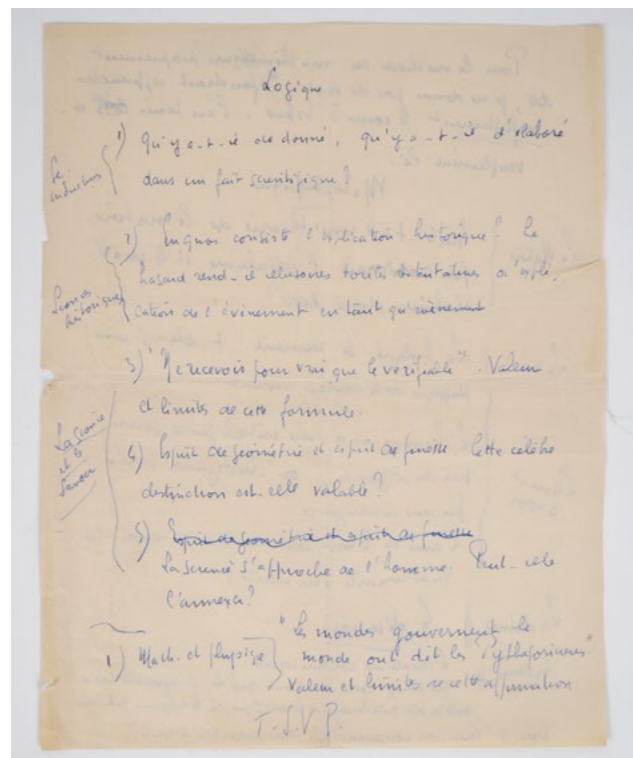 Logique
1) Qu'y a-t-il de donné, qu'y a-t-il d'élaboré
dans un fait scientifique ?
1) En quoi consiste l'explication historique ? Le
hasard rend-il illusoires toutes tentatives d'expli-
cation de l'événement en tant qu'événement
Sciences
historiques
3) "Ne recevoir pour vrai que le vérifiable". Valeur
et limites de cette formule.
La Science
et le
Savoir
4) Esprit de géométrie et esprit de finesse Cette célèbre
distinction est-elle valable ?
5) Esprit de géométrie et esprit de finesse
La science s'approche de l'homme. Peut-elle
l'annexer ?
1) Math. et physique
"Les mondes gouvernent le
monde ont dit les Pythagoriciens"
Valeur et limites de cette affirmation
T.S.V.P.